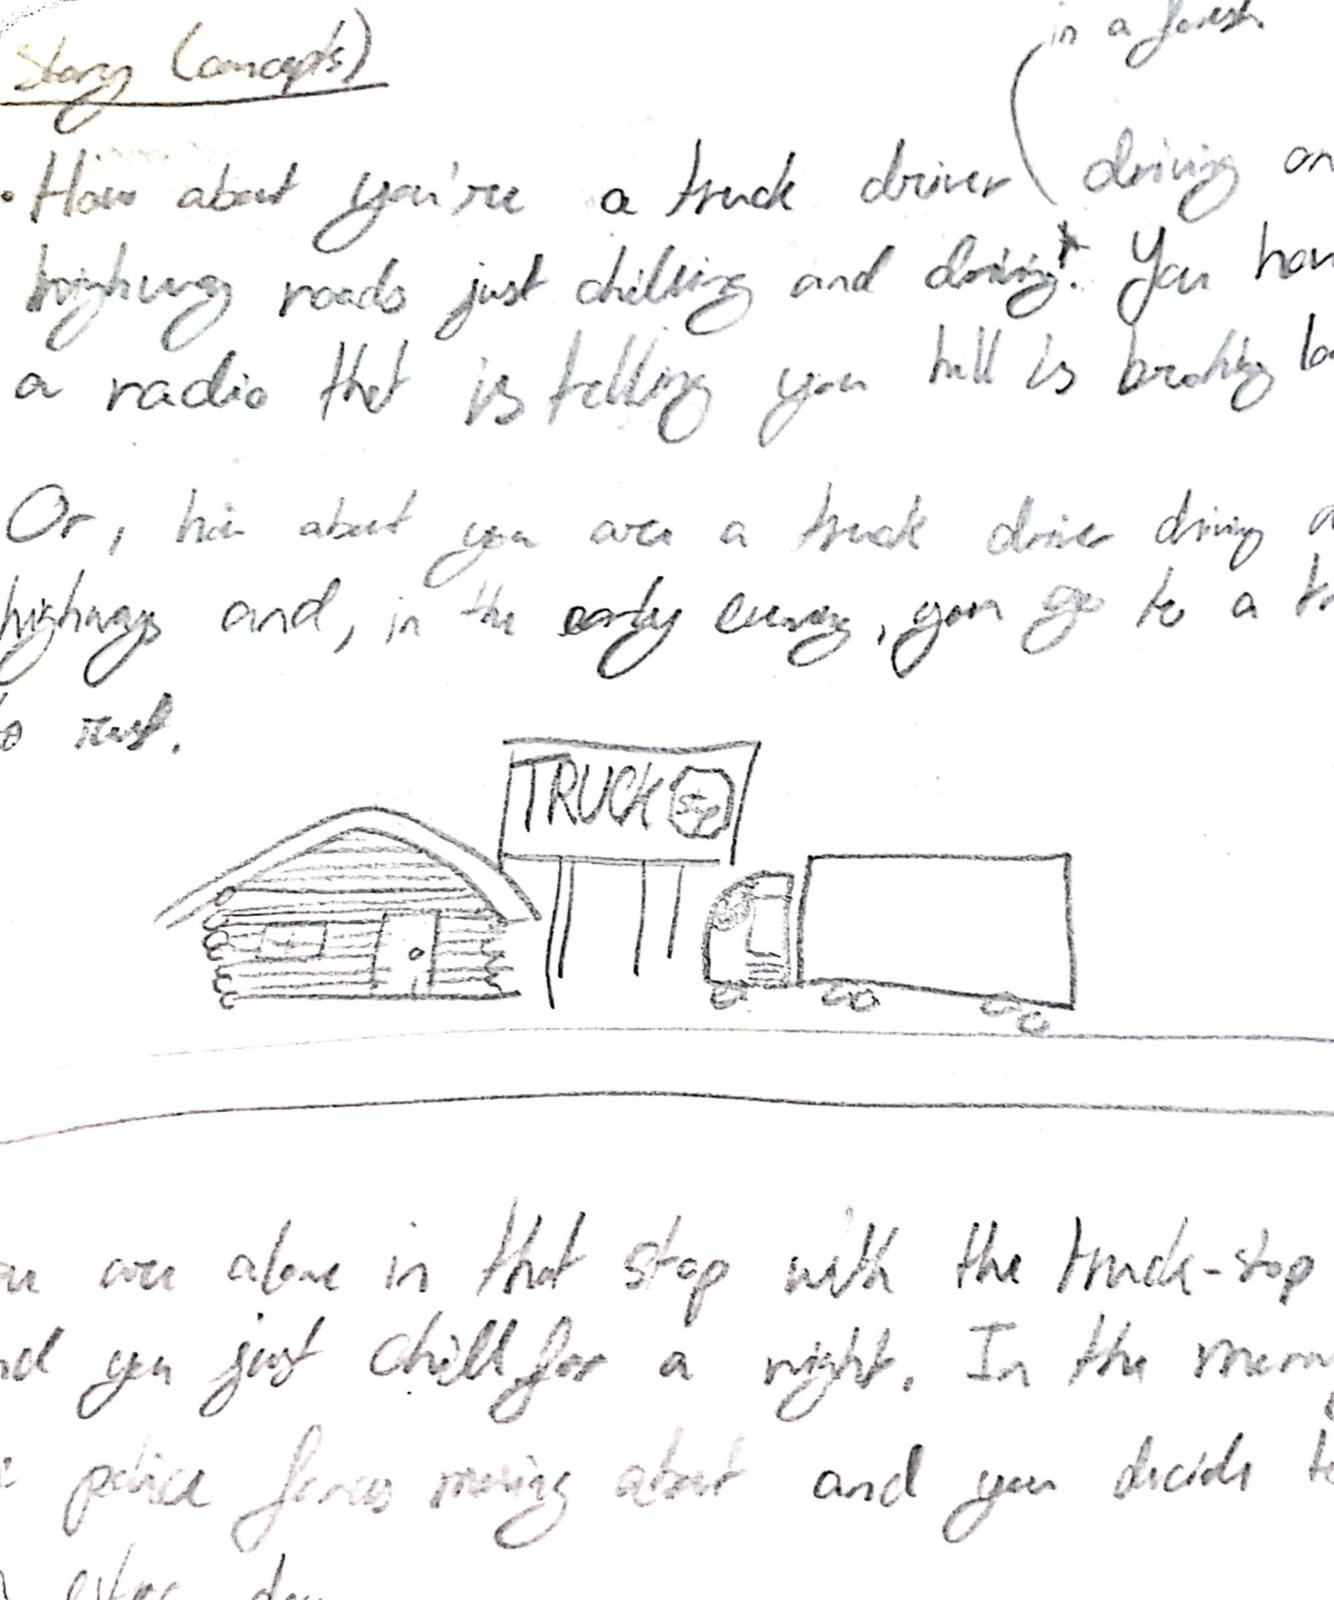 Story (concepts)
in a forest
• How about you're a truck driver driving on
highway roads just chilling and driving. You hav
a radio that is telling you hell is breaking lo
Or, how about you are a truck driver driving a
highway and, in the early evening, you go to a tr
to rest.
TRUCK stop
ou are alone in that stop with the truck-stop
nd you just chill for a night. In the morning
police forces moving about and you decide to
extra day